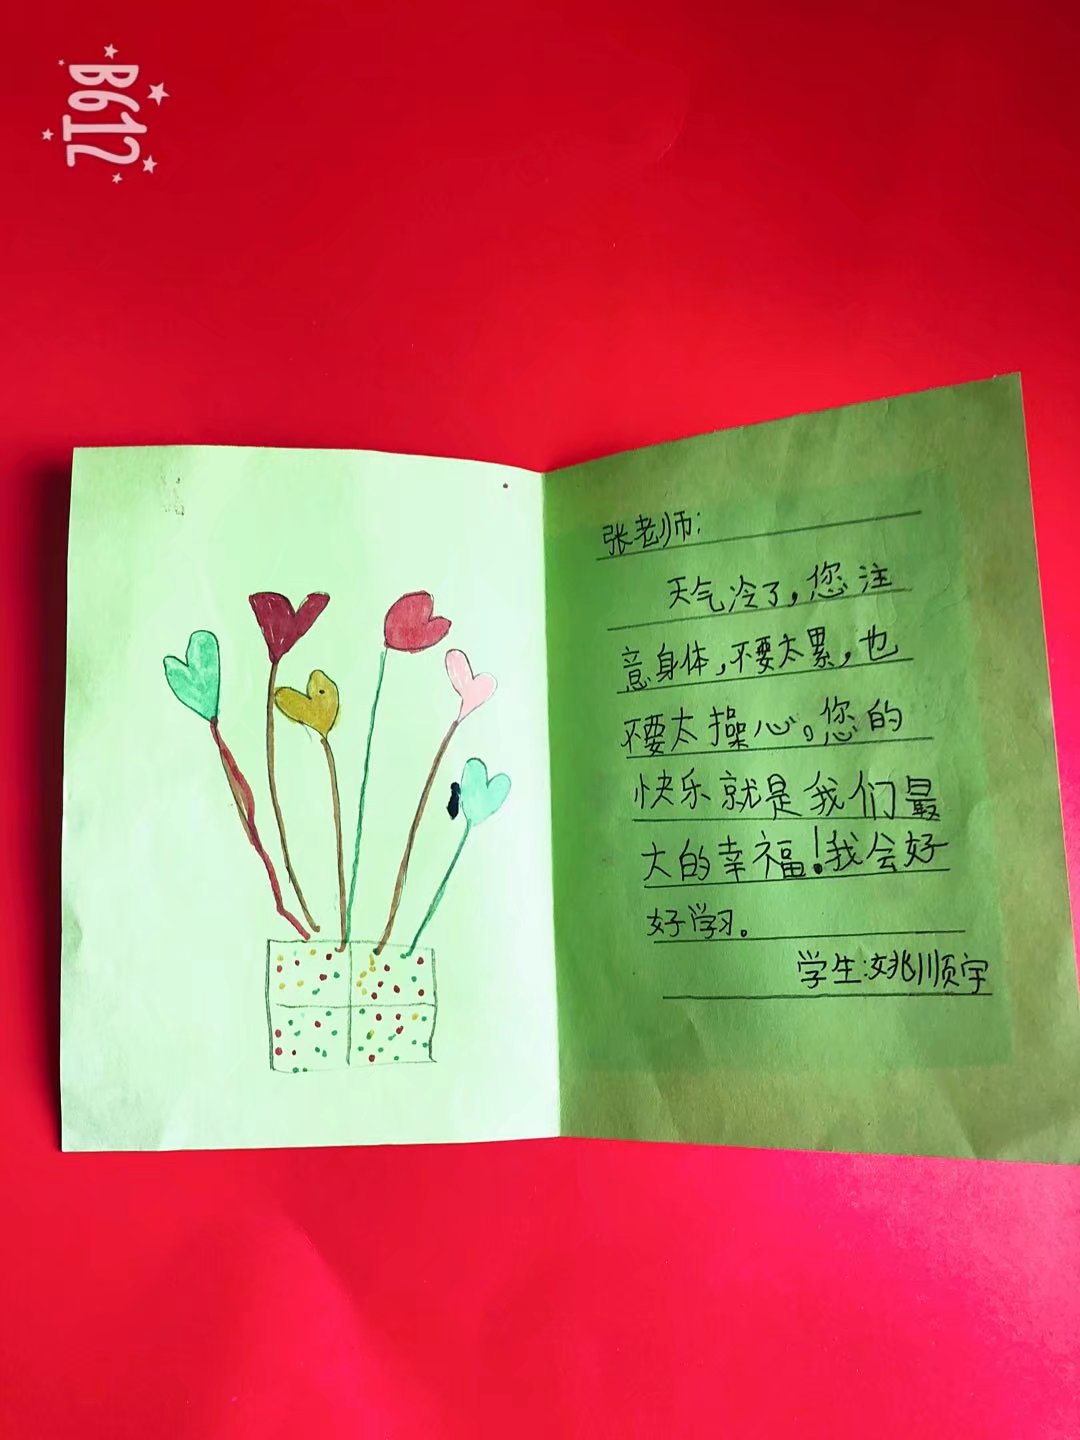 B612
张老师：
天气冷了，您注
意身体，不要太累，也
不要太操心。您的
快乐就是我们最
大的幸福！我会好
好学习。
学生：姚顺宇